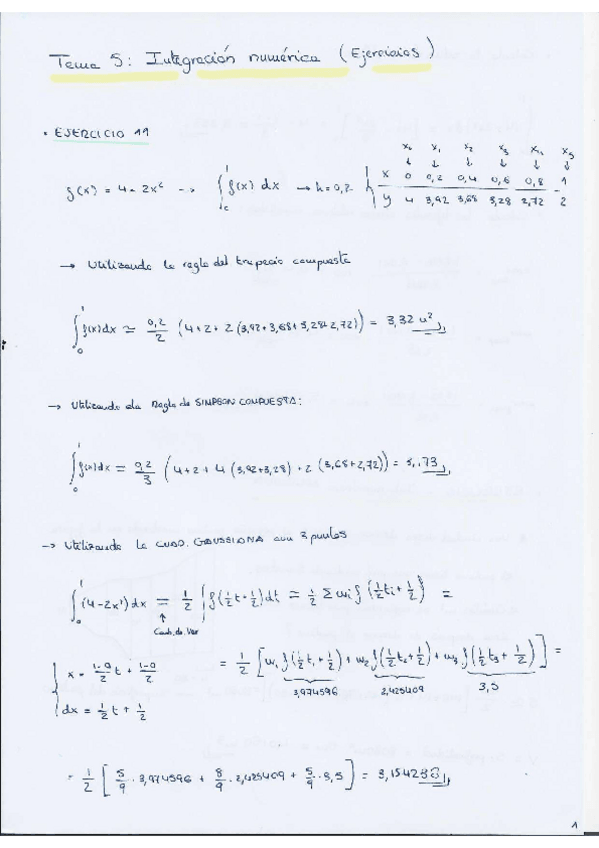 Tema 5: Integración numérica (Ejercicios)
• EJERCICIO 11
x₀ x₁ x₂ x₃ x₄ x₅
↓ ↓ ↓ ↓ ↓ ↓
f(x) = 4 - 2x² -> ∫₀¹ f(x) dx → h = 0,2 x 0 0,2 0,4 0,6 0,8 1
y 4 3,92 3,68 3,28 2,72 2
→ Utilizando la regla del trapecio compuesta
∫₀¹ f(x) dx ≃ 0,2/2 (4+2+2(3,92+3,68+3,28+2,72)) = 3,32 u²
→ Utilizando la Regla de SIMPSON COMPUESTA:
∫₀¹ f(x) dx = 0,2/3 (4+2+4(3,92+3,28)+2(3,68+2,72)) = 3,173
→ Utilizando la CUAD. GAUSSIANA con 3 puntos
∫₀¹ (4-2x²) dx = 1/2 ∫ f(1/2 t + 1/2) dt ≃ 1/2 Σ wi f(1/2 ti + 1/2) =
↑
Camb. de Var
x = 1-0/2 t + 1-0/2
dx = 1/2 t + 1/2
= 1/2 [w₁ f(1/2 t₁ + 1/2) + w₂ f(1/2 t₂ + 1/2) + w₃ f(1/2 t₃ + 1/2)] =
3,974596 2,425409 3,5
= 1/2 [5/9 · 3,974596 + 8/9 · 2,425409 + 5/9 · 3,5] =
1